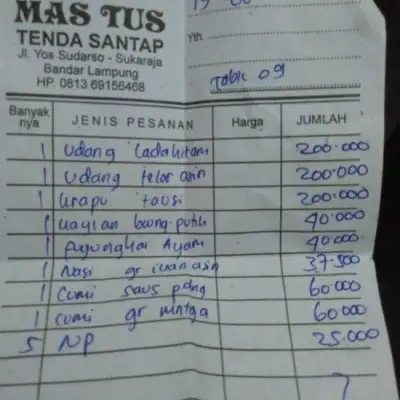 MAS TUS
TENDA SANTAP
Jl. Yos Sudarso - Sukaraja
Bandar Lampung
HP. 0813 69156468
19
Yth.
Table 09
Banyak nya JENIS PESANAN Harga JUMLAH
1 udang ladahitam 200.000
1 udang telor asin 200.000
1 krapu tausi 200.000
1 kaylan bwng putih 40.000
1 Ayam 40.000
1 Nasi gr ikan asin 37.500
1 cumi saus pdng 60.000
1 cumi gr mntga 60.000
5 NP 25.000